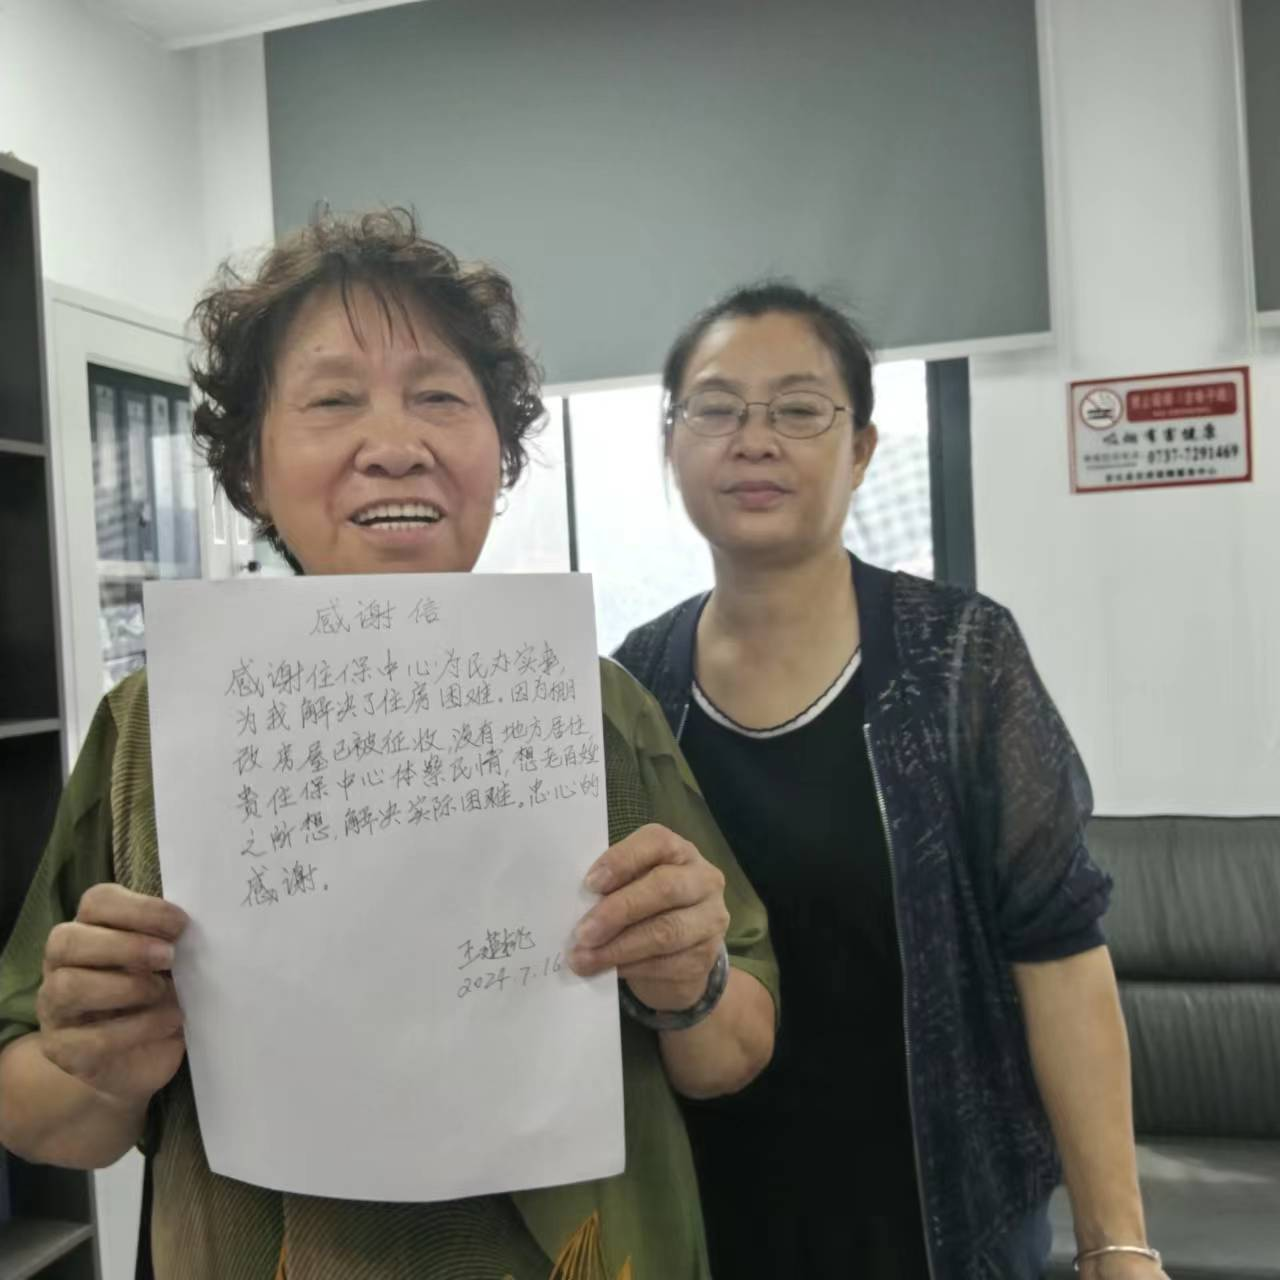 感谢信
感谢住保中心为民办实事,
为我解决了住房困难。因为棚
改房屋已被征收,没有地方居住,
贵住保中心体察民情,想老百姓
之所想,解决实际困难。忠心的
感谢。
2024.7.16
禁止吸烟
吸烟有害健康
0737-7291469